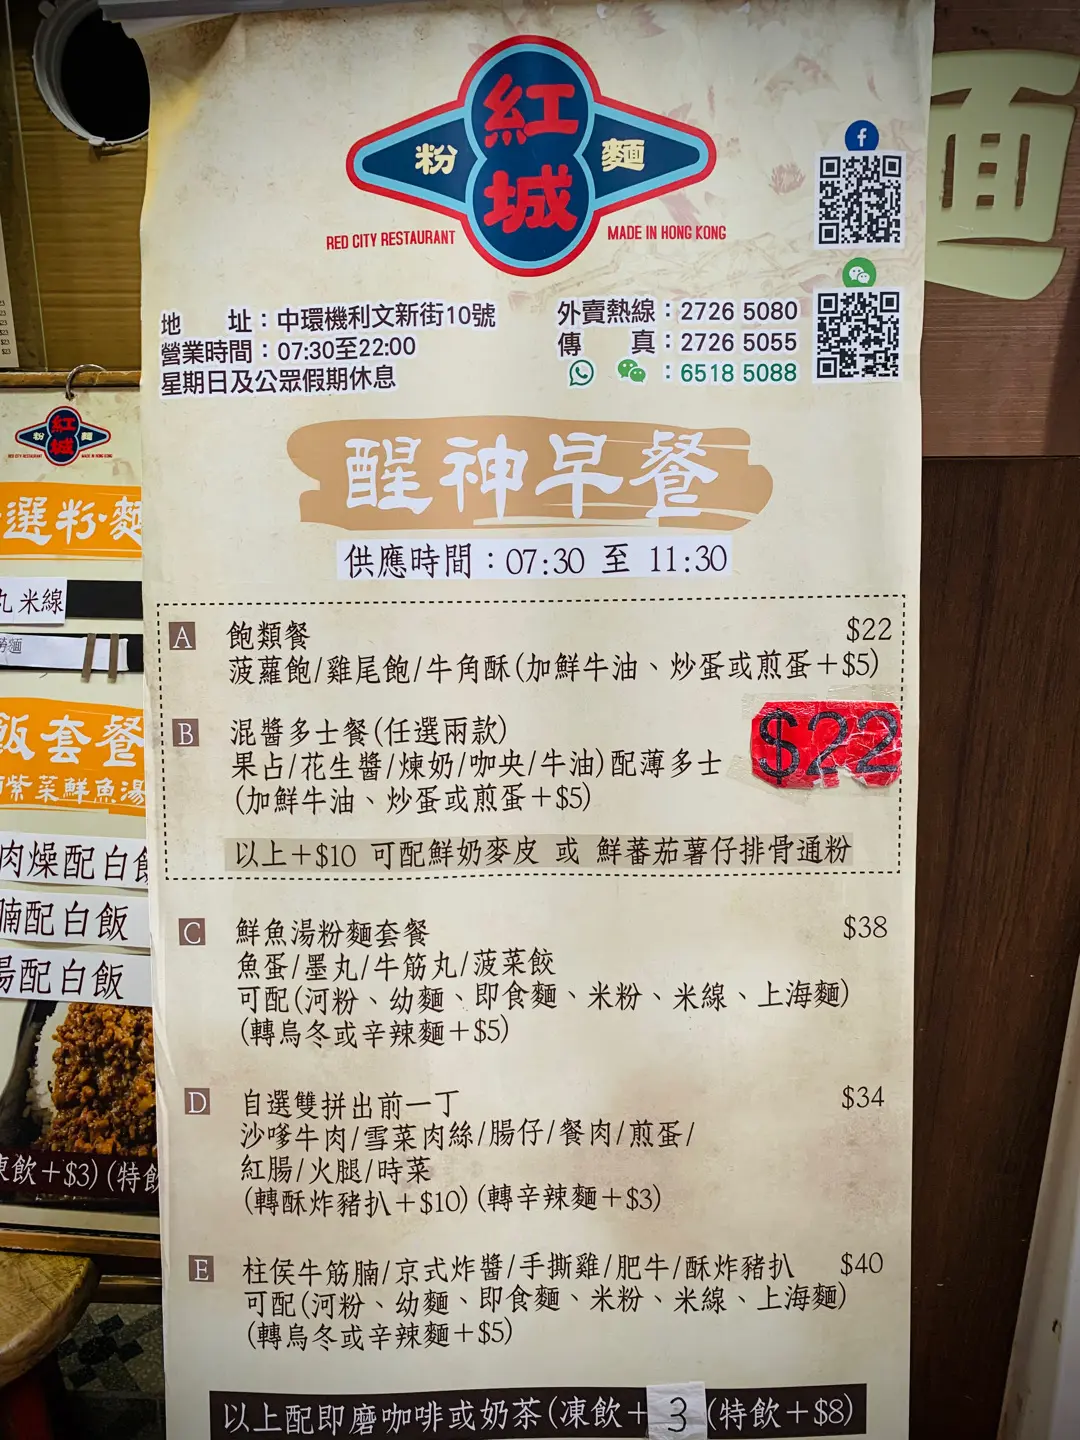 紅城
粉 麵
RED CITY RESTAURANT
MADE IN HONG KONG
地 址：中環機利文新街10號
營業時間：07:30至22:00
星期日及公眾假期休息
外賣熱線：2726 5080
傳 真：2726 5055
：6518 5088
醒神早餐
供應時間：07:30 至 11:30
A 飽類餐 $22
菠蘿飽/雞尾飽/牛角酥(加鮮牛油、炒蛋或煎蛋＋$5)
B 混醬多士餐(任選兩款) $22
果占/花生醬/煉奶/咖央/牛油)配薄多士
(加鮮牛油、炒蛋或煎蛋＋$5)
以上＋$10 可配鮮奶麥皮 或 鮮蕃茄薯仔排骨通粉
C 鮮魚湯粉麵套餐 $38
魚蛋/墨丸/牛筋丸/菠菜餃
可配(河粉、幼麵、即食麵、米粉、米線、上海麵)
(轉烏冬或辛辣麵＋$5)
D 自選雙拼出前一丁 $34
沙嗲牛肉/雪菜肉絲/腸仔/餐肉/煎蛋/
紅腸/火腿/時菜
(轉酥炸豬扒＋$10)(轉辛辣麵＋$3)
E 柱侯牛筋腩/京式炸醬/手撕雞/肥牛/酥炸豬扒 $40
可配(河粉、幼麵、即食麵、米粉、米線、上海麵)
(轉烏冬或辛辣麵＋$5)
以上配即磨咖啡或奶茶(凍飲＋3(特飲＋$8)
紅城
粉 麵
選粉·麵
丸 米線
飯套餐
紫菜鮮魚湯
肉燥配白飯
腩配白飯
湯配白飯
凍飲＋$3)(特飲
面